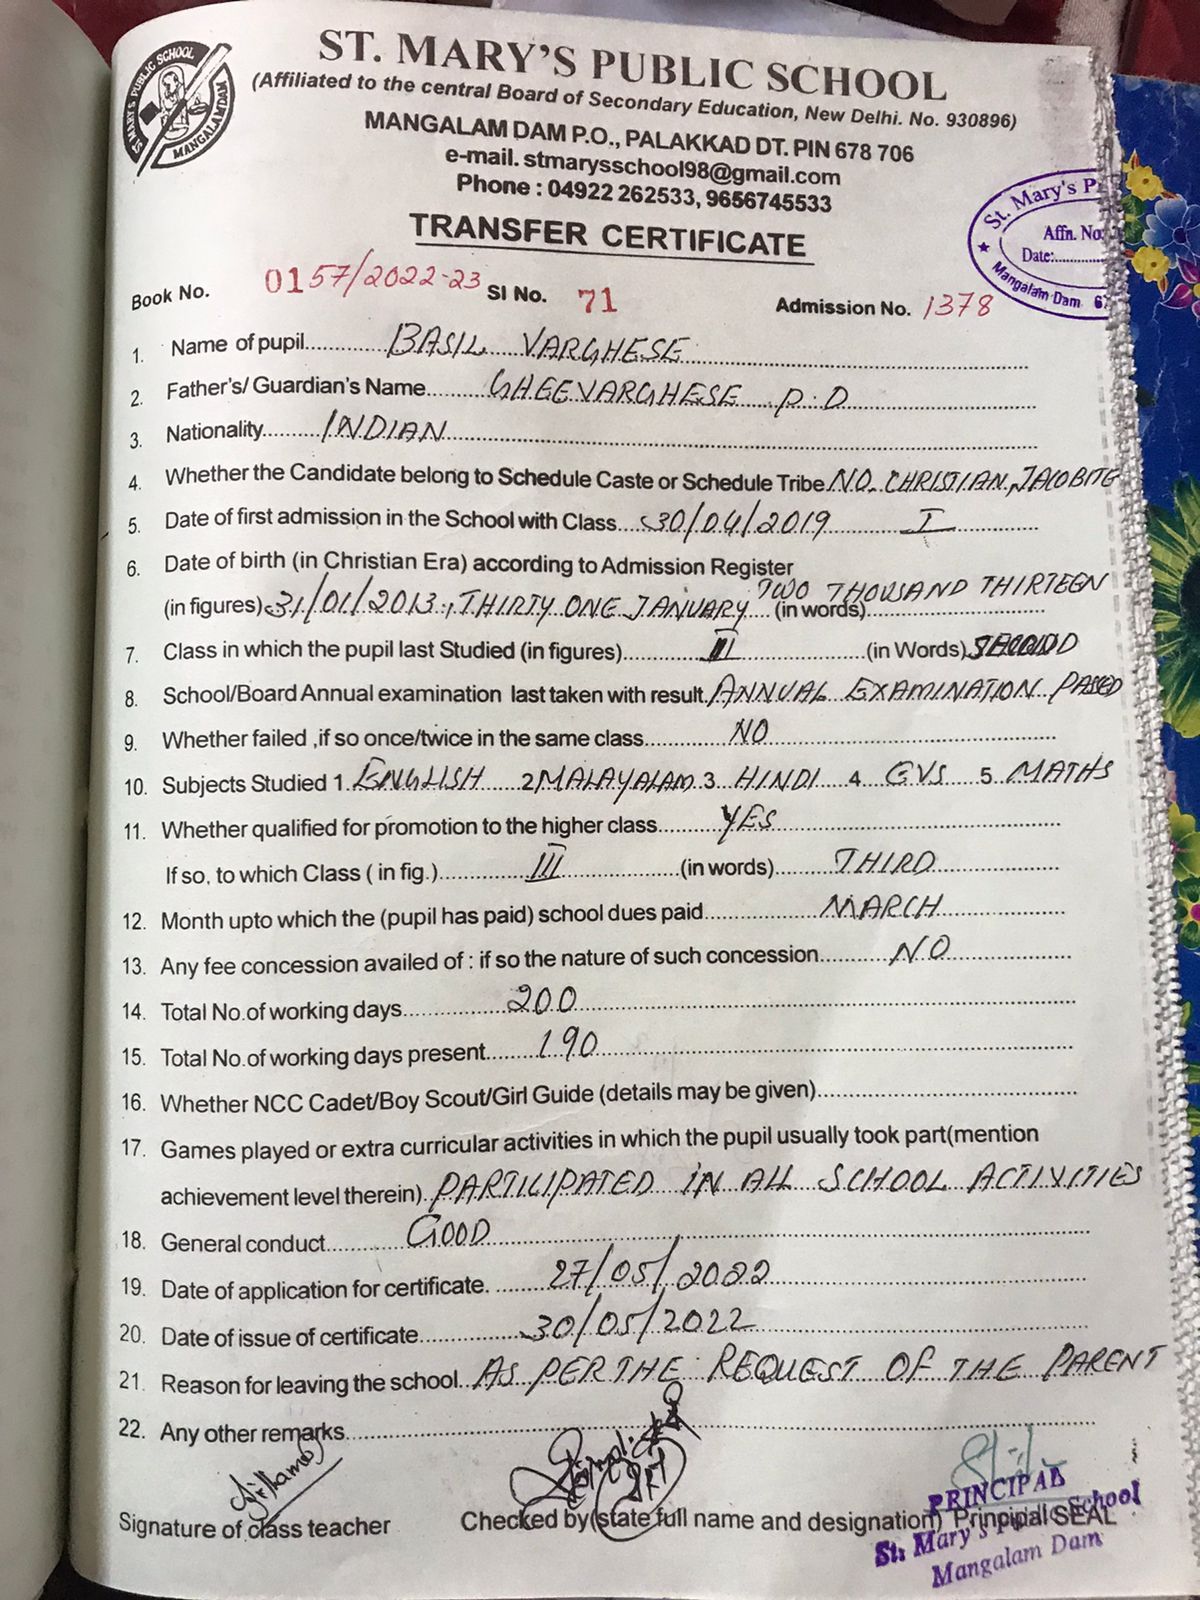 ST. MARY'S PUBLIC SCHOOL
(Affiliated to the central Board of Secondary Education, New Delhi. No. 930896)
MANGALAM DAM P.O., PALAKKAD DT. PIN 678 706
e-mail. stmarysschool98@gmail.com
Phone : 04922 262533, 9656745533
ST MARY'S PUBLIC SCHOOL
MANGALAMDAM
TRANSFER CERTIFICATE
St. Mary's P
Affn. No:
Date:
Mangalam Dam 6
Book No. 0157/2022-23 SI No. 71 Admission No. 1378
1. Name of pupil BASIL VARGHESE
2. Father's/ Guardian's Name GHEEVARGHESE P.D
3. Nationality INDIAN
4. Whether the Candidate belong to Schedule Caste or Schedule Tribe NO. CHRISTIAN, JACOBITE
5. Date of first admission in the School with Class 30/04/2019 I
6. Date of birth (in Christian Era) according to Admission Register
(in figures) 31/01/2013, THIRTY ONE JANUARY (in words) TWO THOUSAND THIRTEEN
7. Class in which the pupil last Studied (in figures) II (in Words) SECOND
8. School/Board Annual examination last taken with result. ANNUAL EXAMINATION PASSED
9. Whether failed ,if so once/twice in the same class NO
10. Subjects Studied 1. ENGLISH 2 MALAYALAM 3. HINDI 4. EVS 5. MATHS
11. Whether qualified for promotion to the higher class YES
If so, to which Class ( in fig.) III (in words) THIRD
12. Month upto which the (pupil has paid) school dues paid MARCH
13. Any fee concession availed of : if so the nature of such concession NO
14. Total No.of working days 200
15. Total No.of working days present 190
16. Whether NCC Cadet/Boy Scout/Girl Guide (details may be given)
17. Games played or extra curricular activities in which the pupil usually took part(mention
achievement level therein). PARTICIPATED IN ALL SCHOOL ACTIVITIES
18. General conduct GOOD
19. Date of application for certificate. 27/05/2022
20. Date of issue of certificate 30/05/2022
21. Reason for leaving the school. AS PER THE REQUEST OF THE PARENT
22. Any other remarks
Signature of class teacher Checked by(state full name and designation) Prinpidal SEAL
PRINCIPAL
St. Mary's Public School
Mangalam Dam